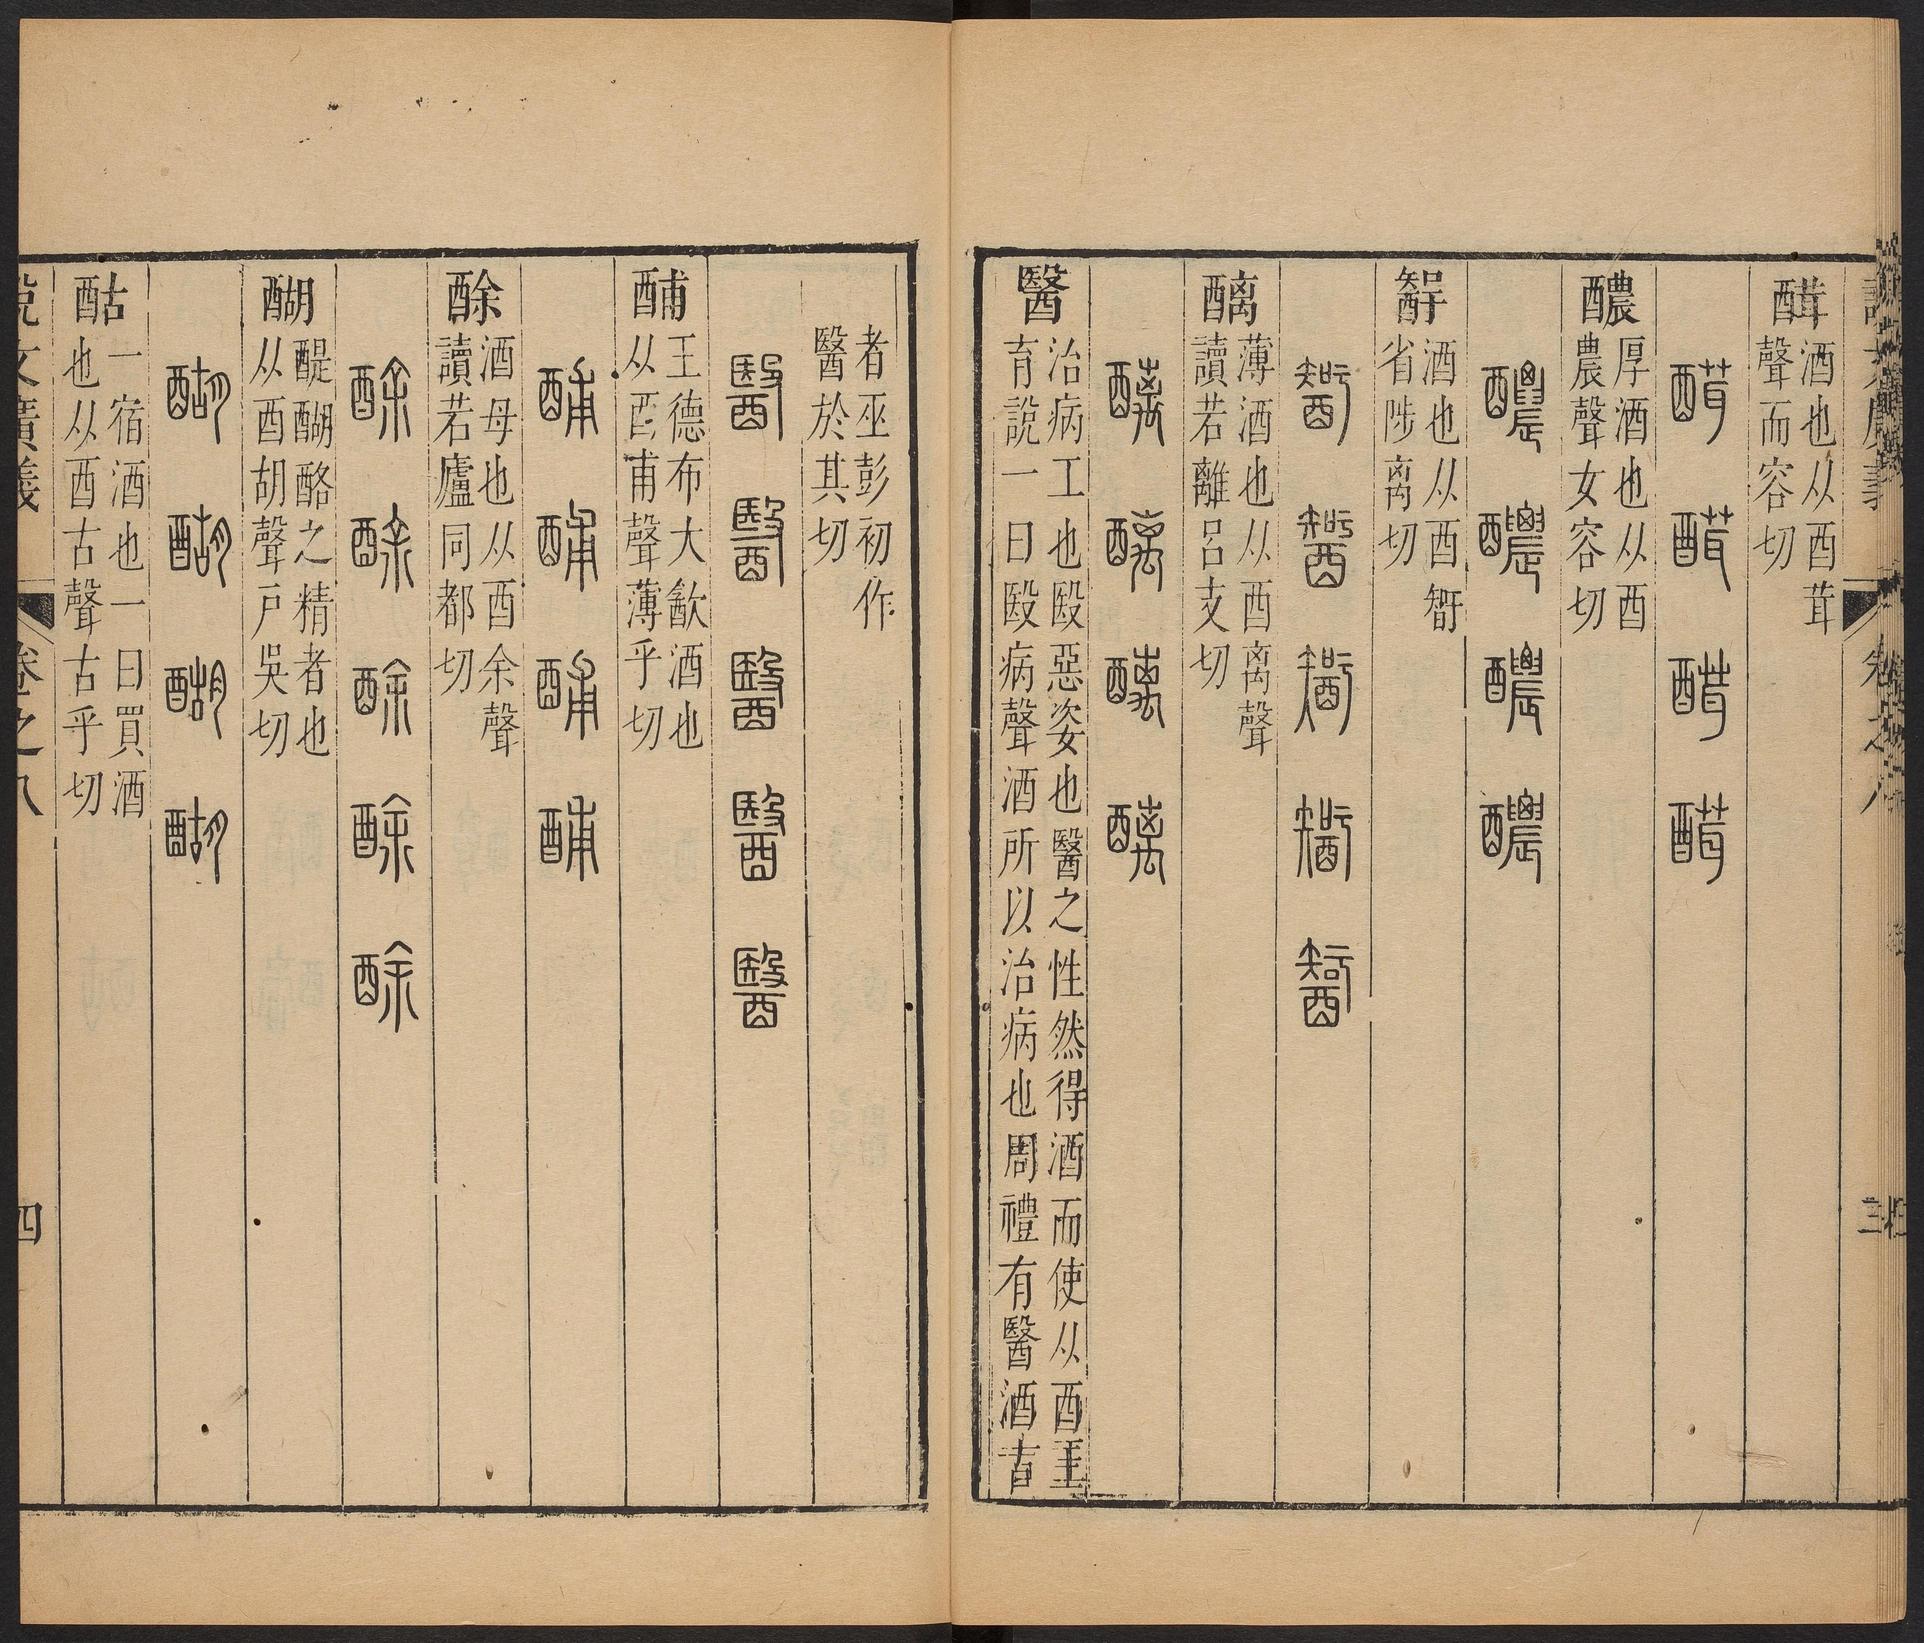 醋酒也从酉茸
聲而容切
醲厚酒也从酉
農聲女容切
醲醲醲醲
酒也从酉𥏼
省陟离切
醨薄酒也从酉离聲
讀若離呂支切
醨醨醨醨
醫治病工也殹惡姿也醫之性然得酒而使从酉王
育說一曰殹病聲酒所以治病也周禮有醫酒古
者巫彭初作
醫於其切
醫醫醫醫醫
酺王德布大㱃酒也
从酉甫聲薄乎切
酺酺酺酺
酴酒母也从酉余聲
讀若廬同都切
酴酴酴酴酴
醐醍醐酪之精者也
从酉胡聲戸吳切
醐醐醐醐
酤一宿酒也一曰買酒
也从酉古聲古乎切
說文廣義
卷之八
四